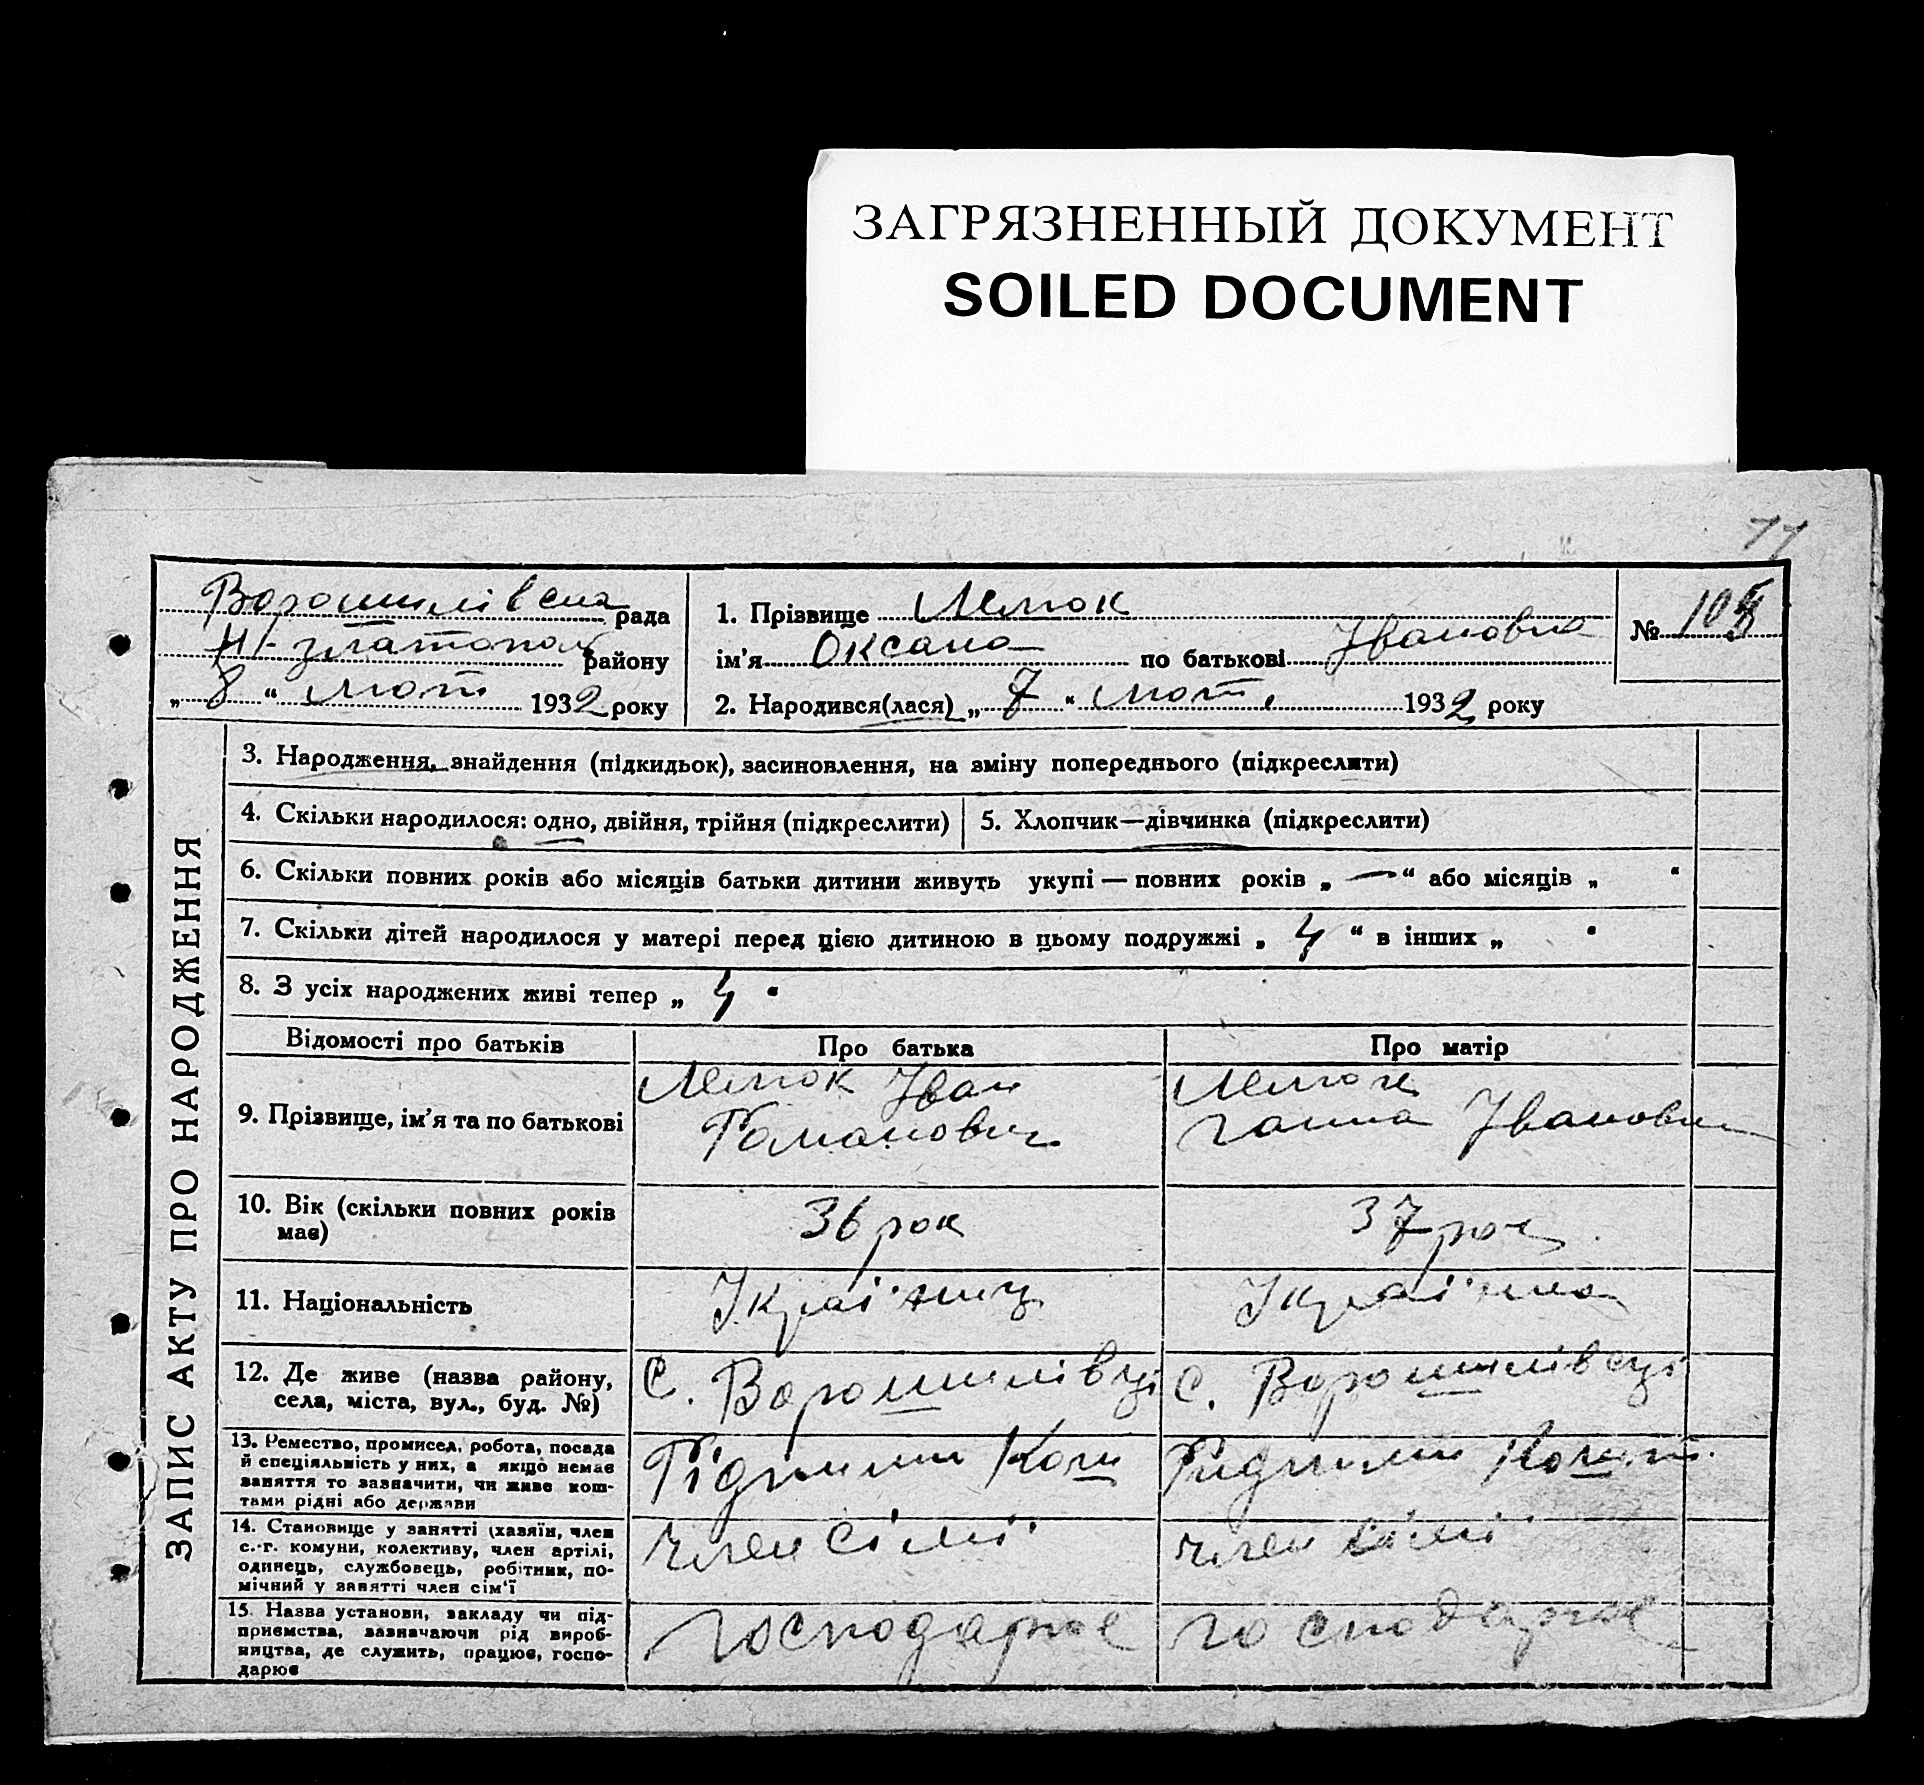 ЗАГРЯЗНЕННЫЙ ДОКУМЕНТ
SOILED DOCUMENT
Ворошилівська рада
Н-златопол району
„ 8 “ лют 1932 року
1. Прізвище
ім'я Оксана по батькові Івановна
2. Народився(лася) „ 7 “ лют, 1932 року
№
ЗАПИС АКТУ ПРО НАРОДЖЕННЯ
3. Народження, знайдення (підкидьок), засиновлення, на зміну попереднього (підкреслити)
4. Скільки народилося: одно, двійня, трійня (підкреслити)
5. Хлопчик—дівчинка (підкреслити)
6. Скільки повних років або місяців батьки дитини живуть укупі — повних років „ — “ або місяців „ “
7. Скільки дітей народилося у матері перед цією дитиною в цьому подружжі „ 4 “ в інших „ “
8. З усіх народжених живі тепер „ 4 “
Відомості про батьків
Про батька
Про матір
9. Прізвище, ім'я та по батькові
Іван
Романович
Ганна Івановн
10. Вік (скільки повних років
має)
36 рок
37 рок
11. Національність
Українц
Українка
12. Де живе (назва району,
села, міста, вул., буд. №)
С. Ворошилівці
С. Ворошилівсці
13. Ремество, промисел, робота, посада
й спеціяльність у них, а якщо немає
заняття то зазначити, чи живе кош-
тами рідні або держави
14. Становище у занятті (хазяїн, член
с.-г. комуни, колективу, член артілі,
одинець, службовець, робітник, по-
мічний у занятті член сім'ї
член сімі
член сімі
15. Назва установи, закладу чи під-
приємства, зазначаючи рід вироб-
ництва, де служить, працює, госпо-
дарює
господарює
господарює